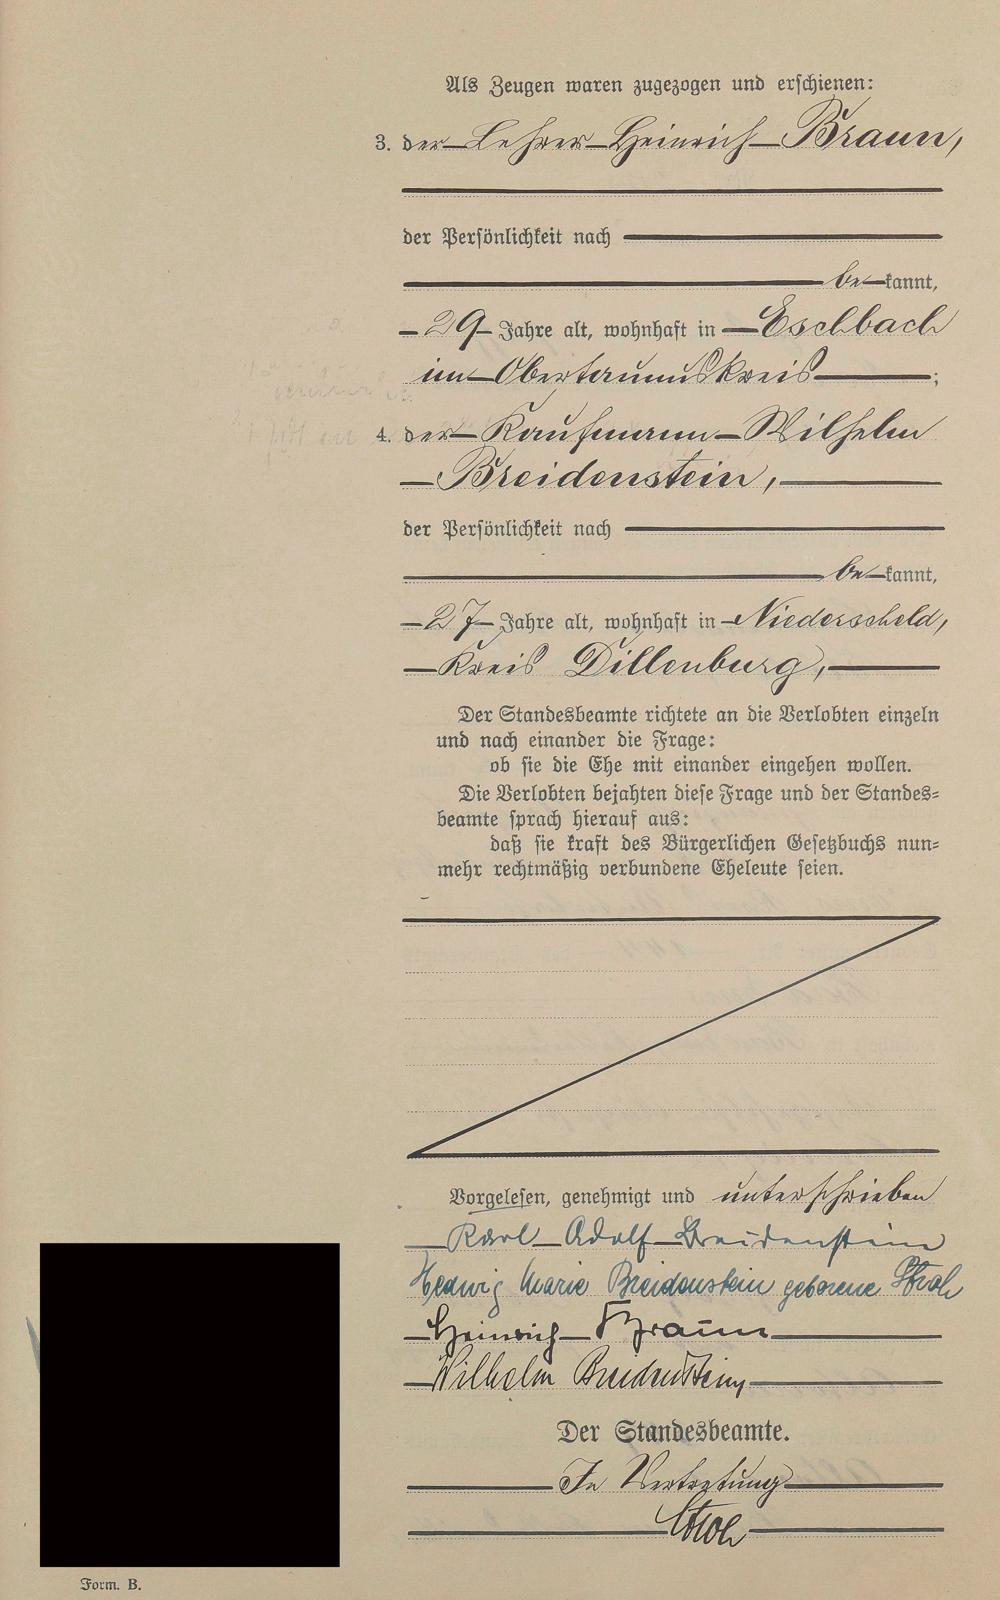 Als Zeugen waren zugezogen und erschienen:
3. der Lehrer Heinrich Braun,
der Persönlichkeit nach
be kannt,
29 Jahre alt, wohnhaft in Eschbach
im Obertaunuskreis ;
4. der Kaufmann Wilhelm
Breidenstein,
der Persönlichkeit nach
be kannt,
27 Jahre alt, wohnhaft in Niederscheld,
Kreis Dillenburg,
Der Standesbeamte richtete an die Verlobten einzeln
und nach einander die Frage:
ob sie die Ehe mit einander eingehen wollen.
Die Verlobten bejahten diese Frage und der Standes=
beamte sprach hierauf aus:
daß sie kraft des Bürgerlichen Gesetzbuchs nun=
mehr rechtmäßig verbundene Eheleute seien.
Vorgelesen, genehmigt und unterschrieben
Karl Adolf Breidenstein
Hedwig Marie Breidenstein geborene Stroh
Heinrich Braun
Wilhelm Breidenstein
Der Standesbeamte.
In Vertretung
Stroh
Form. B.